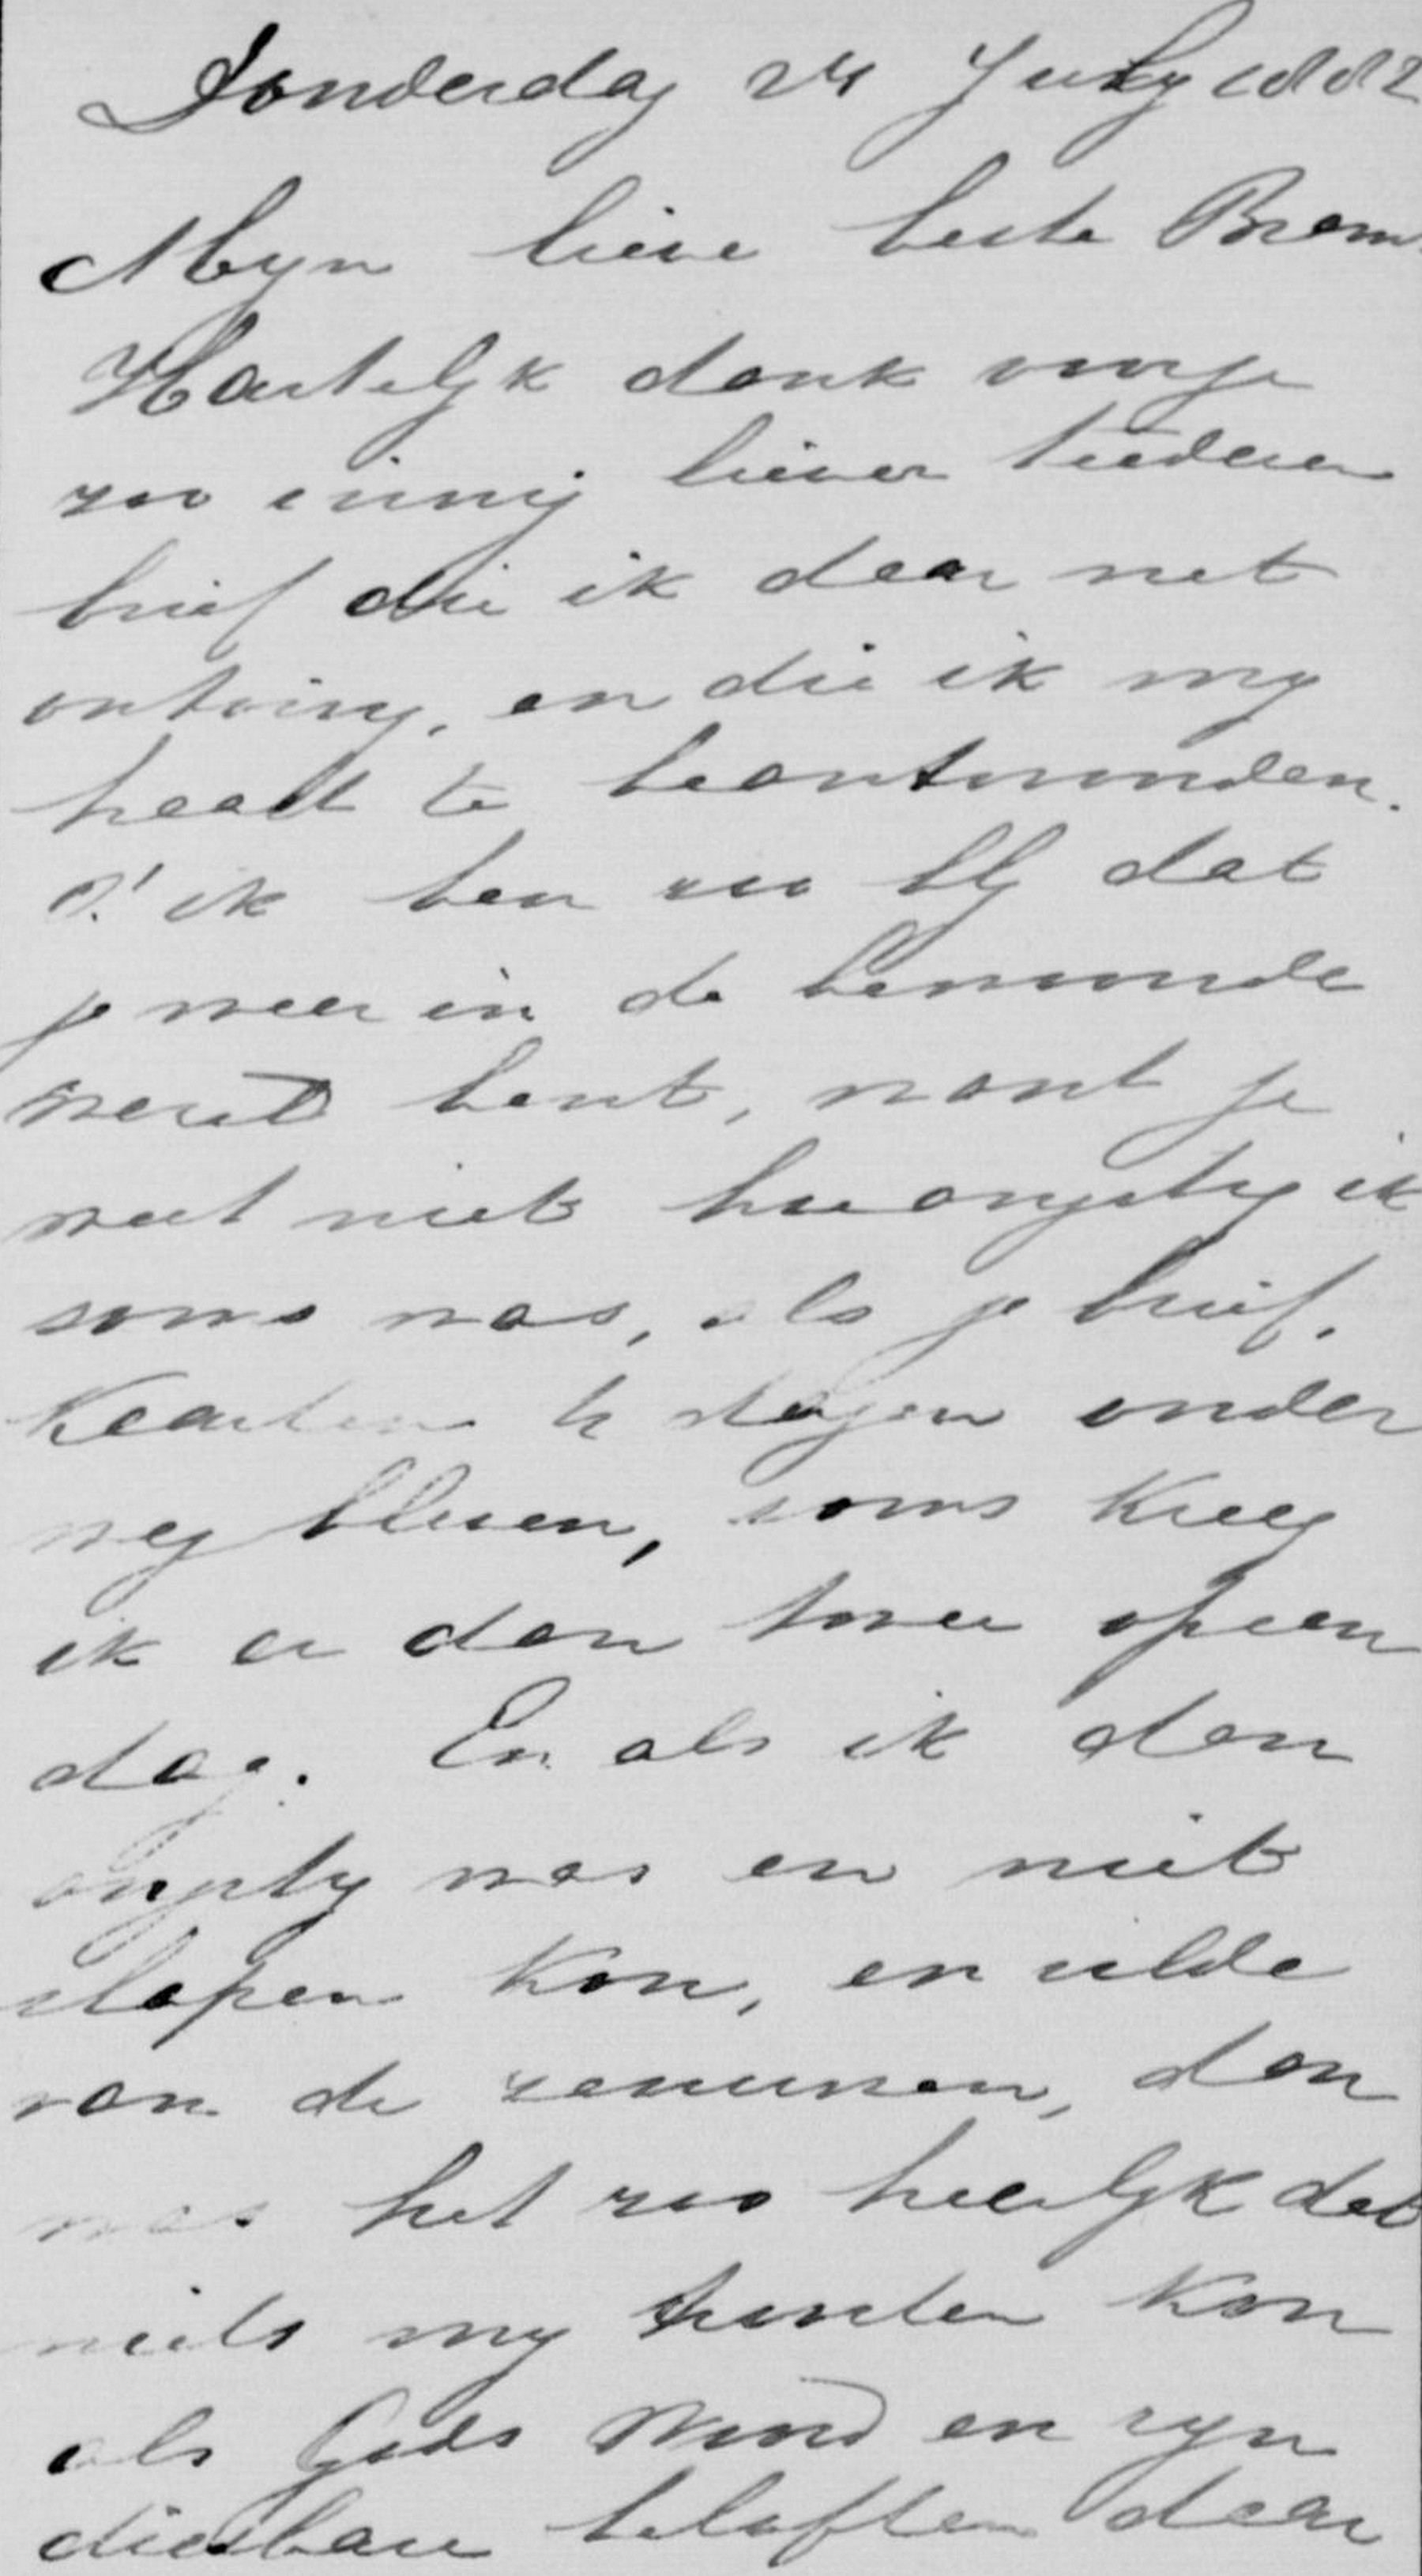 Donderdag 24 July 1882
Myn lieve beste Bram
Hartelyk dank voor je
zoo innig lieven teederen
brief die ik daar net
ontving, en die ik my
haast te beantwoorden.
O! ik ben zoo bly dat
je weer in de bewoonde
wereld bent, want je
weet niet hoe angstig ik
soms was, als je brief.
kaarten 4 dagen onder
weg bleven, soms kreeg
ik er dan twee op een
dag. En als ik dan
angstig was en niet
slapen kon, en rilde
van de zenuwen, dan
was het zoo heerlyk dat
niets my troosten kon
als Gods Woord en zyn
dierbare beloften daar